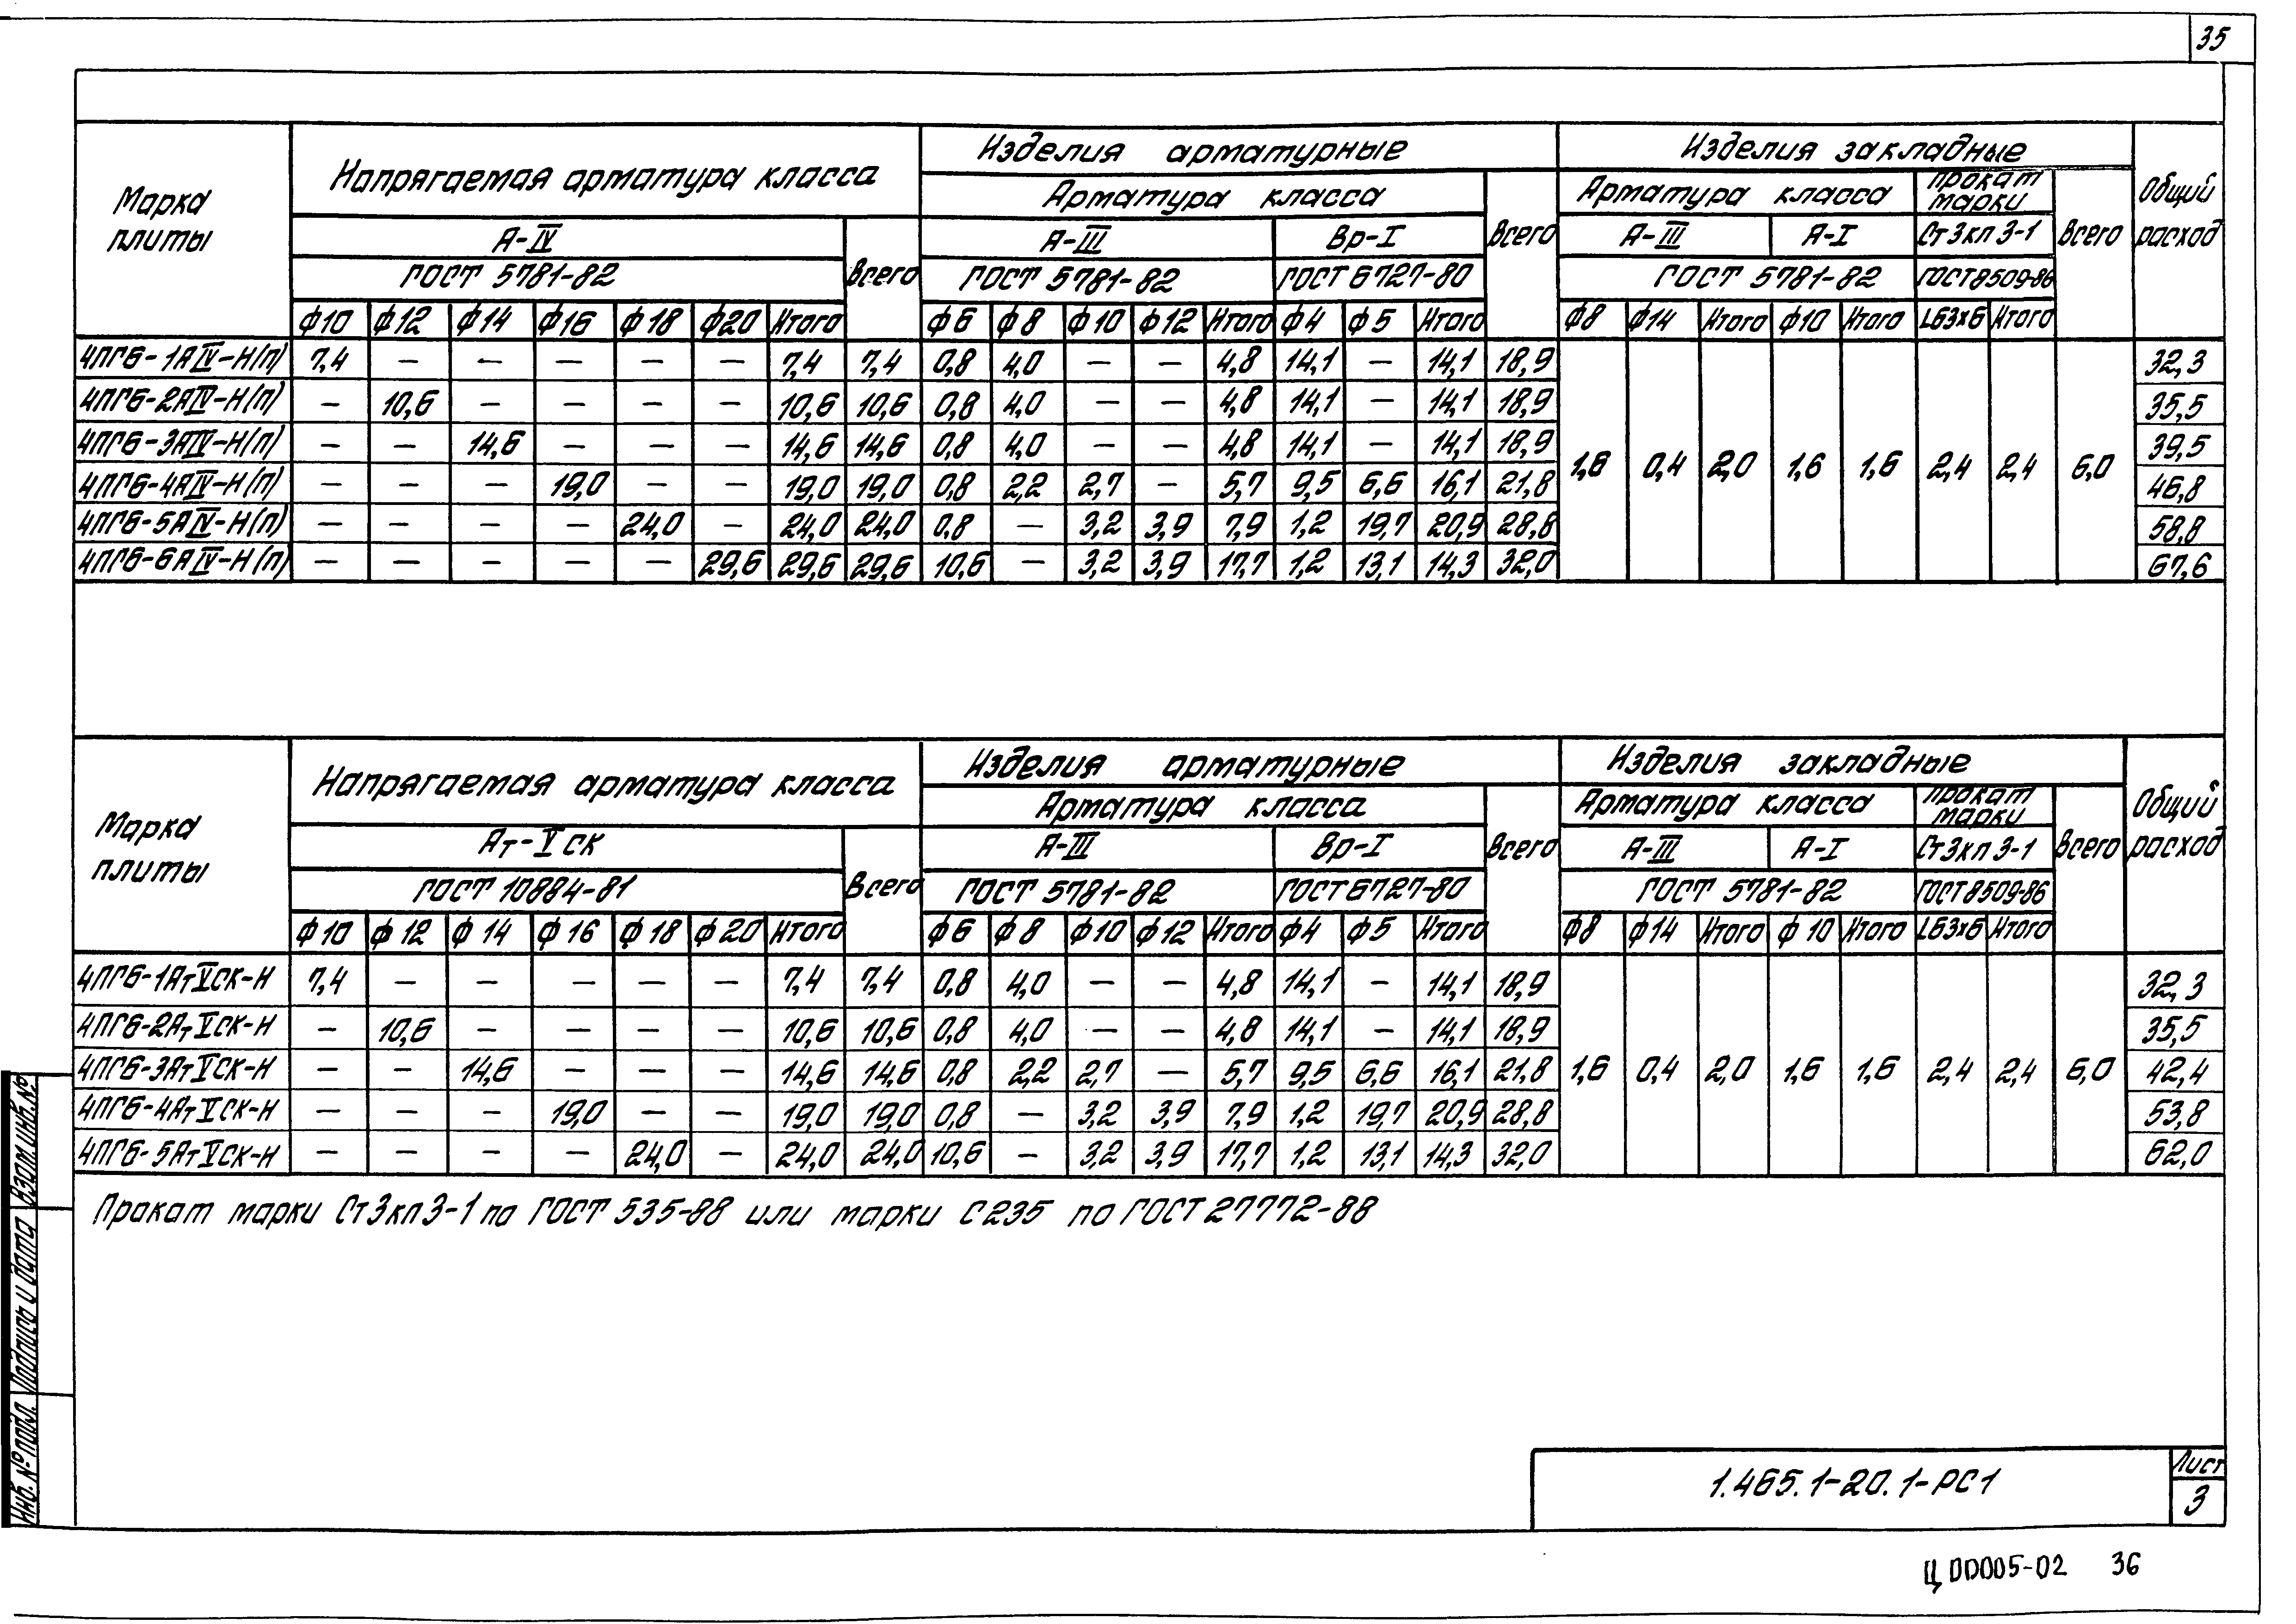 35
Марка плиты
Напрягаемая арматура класса
Изделия арматурные
Изделия закладные
Общий расход
Арматура класса
Всего
Арматура класса
Прокат марки
Всего
А-IV
Всего
А-III
Вр-I
А-III
А-I
Ст3кп3-1
ГОСТ 5781-82
ГОСТ 5781-82
ГОСТ 6727-80
ГОСТ 5781-82
ГОСТ 8509-86
ф10 ф12 ф14 ф16 ф18 ф20 Итого ф6 ф8 ф10 ф12 Итого ф4 ф5 Итого ф8 ф14 Итого ф10 Итого L63х6 Итого
4ПГ6-1АIV-Н(п) 7,4 — — — — — 7,4 7,4 0,8 4,0 — — 4,8 14,1 — 14,1 18,9 32,3
4ПГ6-2АIV-Н(п) — 10,6 — — — — 10,6 10,6 0,8 4,0 — — 4,8 14,1 — 14,1 18,9 35,5
4ПГ6-3АIV-Н(п) — — 14,6 — — — 14,6 14,6 0,8 4,0 — — 4,8 14,1 — 14,1 18,9 39,5
1,6 0,4 2,0 1,6 1,6 2,4 2,4 6,0
4ПГ6-4АIV-Н(п) — — — 19,0 — — 19,0 19,0 0,8 2,2 2,7 — 5,7 9,5 6,6 16,1 21,8 46,8
4ПГ6-5АIV-Н(п) — — — — 24,0 — 24,0 24,0 0,8 — 3,2 3,9 7,9 1,2 19,7 20,9 28,8 58,8
4ПГ6-6АIV-Н(п) — — — — — 29,6 29,6 29,6 10,6 — 3,2 3,9 17,7 1,2 13,1 14,3 32,0 67,6
Марка плиты
Напрягаемая арматура класса
Изделия арматурные
Изделия закладные
Общий расход
Арматура класса
Всего
Арматура класса
Прокат марки
Всего
Ат-V ск
Всего
А-III
Вр-I
А-III
А-I
Ст3кп3-1
ГОСТ 10884-81
ГОСТ 5781-82
ГОСТ 6727-80
ГОСТ 5781-82
ГОСТ 8509-86
ф10 ф12 ф14 ф16 ф18 ф20 Итого ф6 ф8 ф10 ф12 Итого ф4 ф5 Итого ф8 ф14 Итого ф10 Итого L63х6 Итого
4ПГ6-1АтVСК-Н 7,4 — — — — — 7,4 7,4 0,8 4,0 — — 4,8 14,1 — 14,1 18,9 32,3
4ПГ6-2АтVСК-Н — 10,6 — — — — 10,6 10,6 0,8 4,0 — — 4,8 14,1 — 14,1 18,9 35,5
4ПГ6-3АтVСК-Н — — 14,6 — — — 14,6 14,6 0,8 2,2 2,7 — 5,7 9,5 6,6 16,1 21,8 1,6 0,4 2,0 1,6 1,6 2,4 2,4 6,0 42,4
4ПГ6-4АтVСК-Н — — — 19,0 — — 19,0 19,0 0,8 — 3,2 3,9 7,9 1,2 19,7 20,9 28,8 53,8
4ПГ6-5АтVСК-Н — — — — 24,0 — 24,0 24,0 10,6 — 3,2 3,9 17,7 1,2 13,1 14,3 32,0 62,0
Прокат марки Ст3кп3-1 по ГОСТ 535-88 или марки С235 по ГОСТ 27772-88
Взам.инв.№
Подпись и дата
Инв.№ подл.
1.465.1-20.1-РС1
Лист
3
Ц00005-02 36